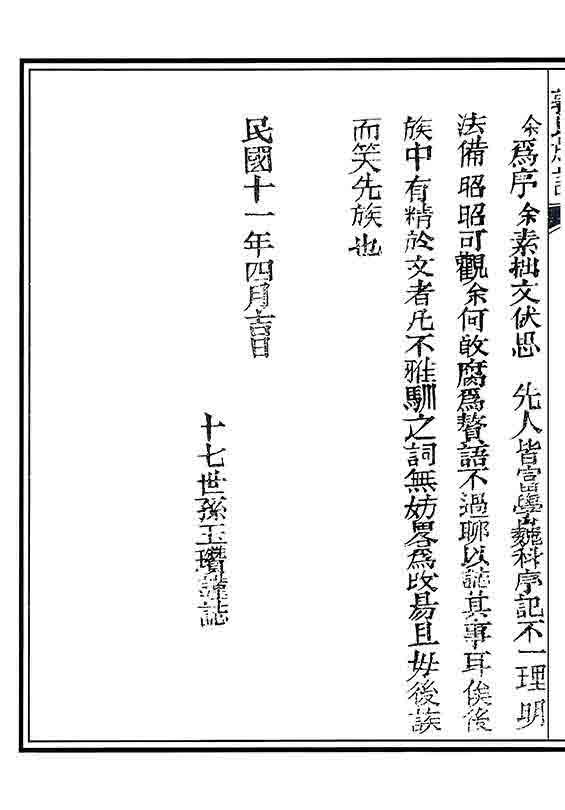 余爲序余素拙文伏思 先人皆富學巍科序記不一理明
法備昭昭可觀余何敢腐爲贅語不過聊以誌其事耳俟後
族中有精於文者凡不雅馴之詞無妨畧爲改易且毋後族
而笑先族也
民國十一年四月吉日
十七世孫玉瓚謹誌